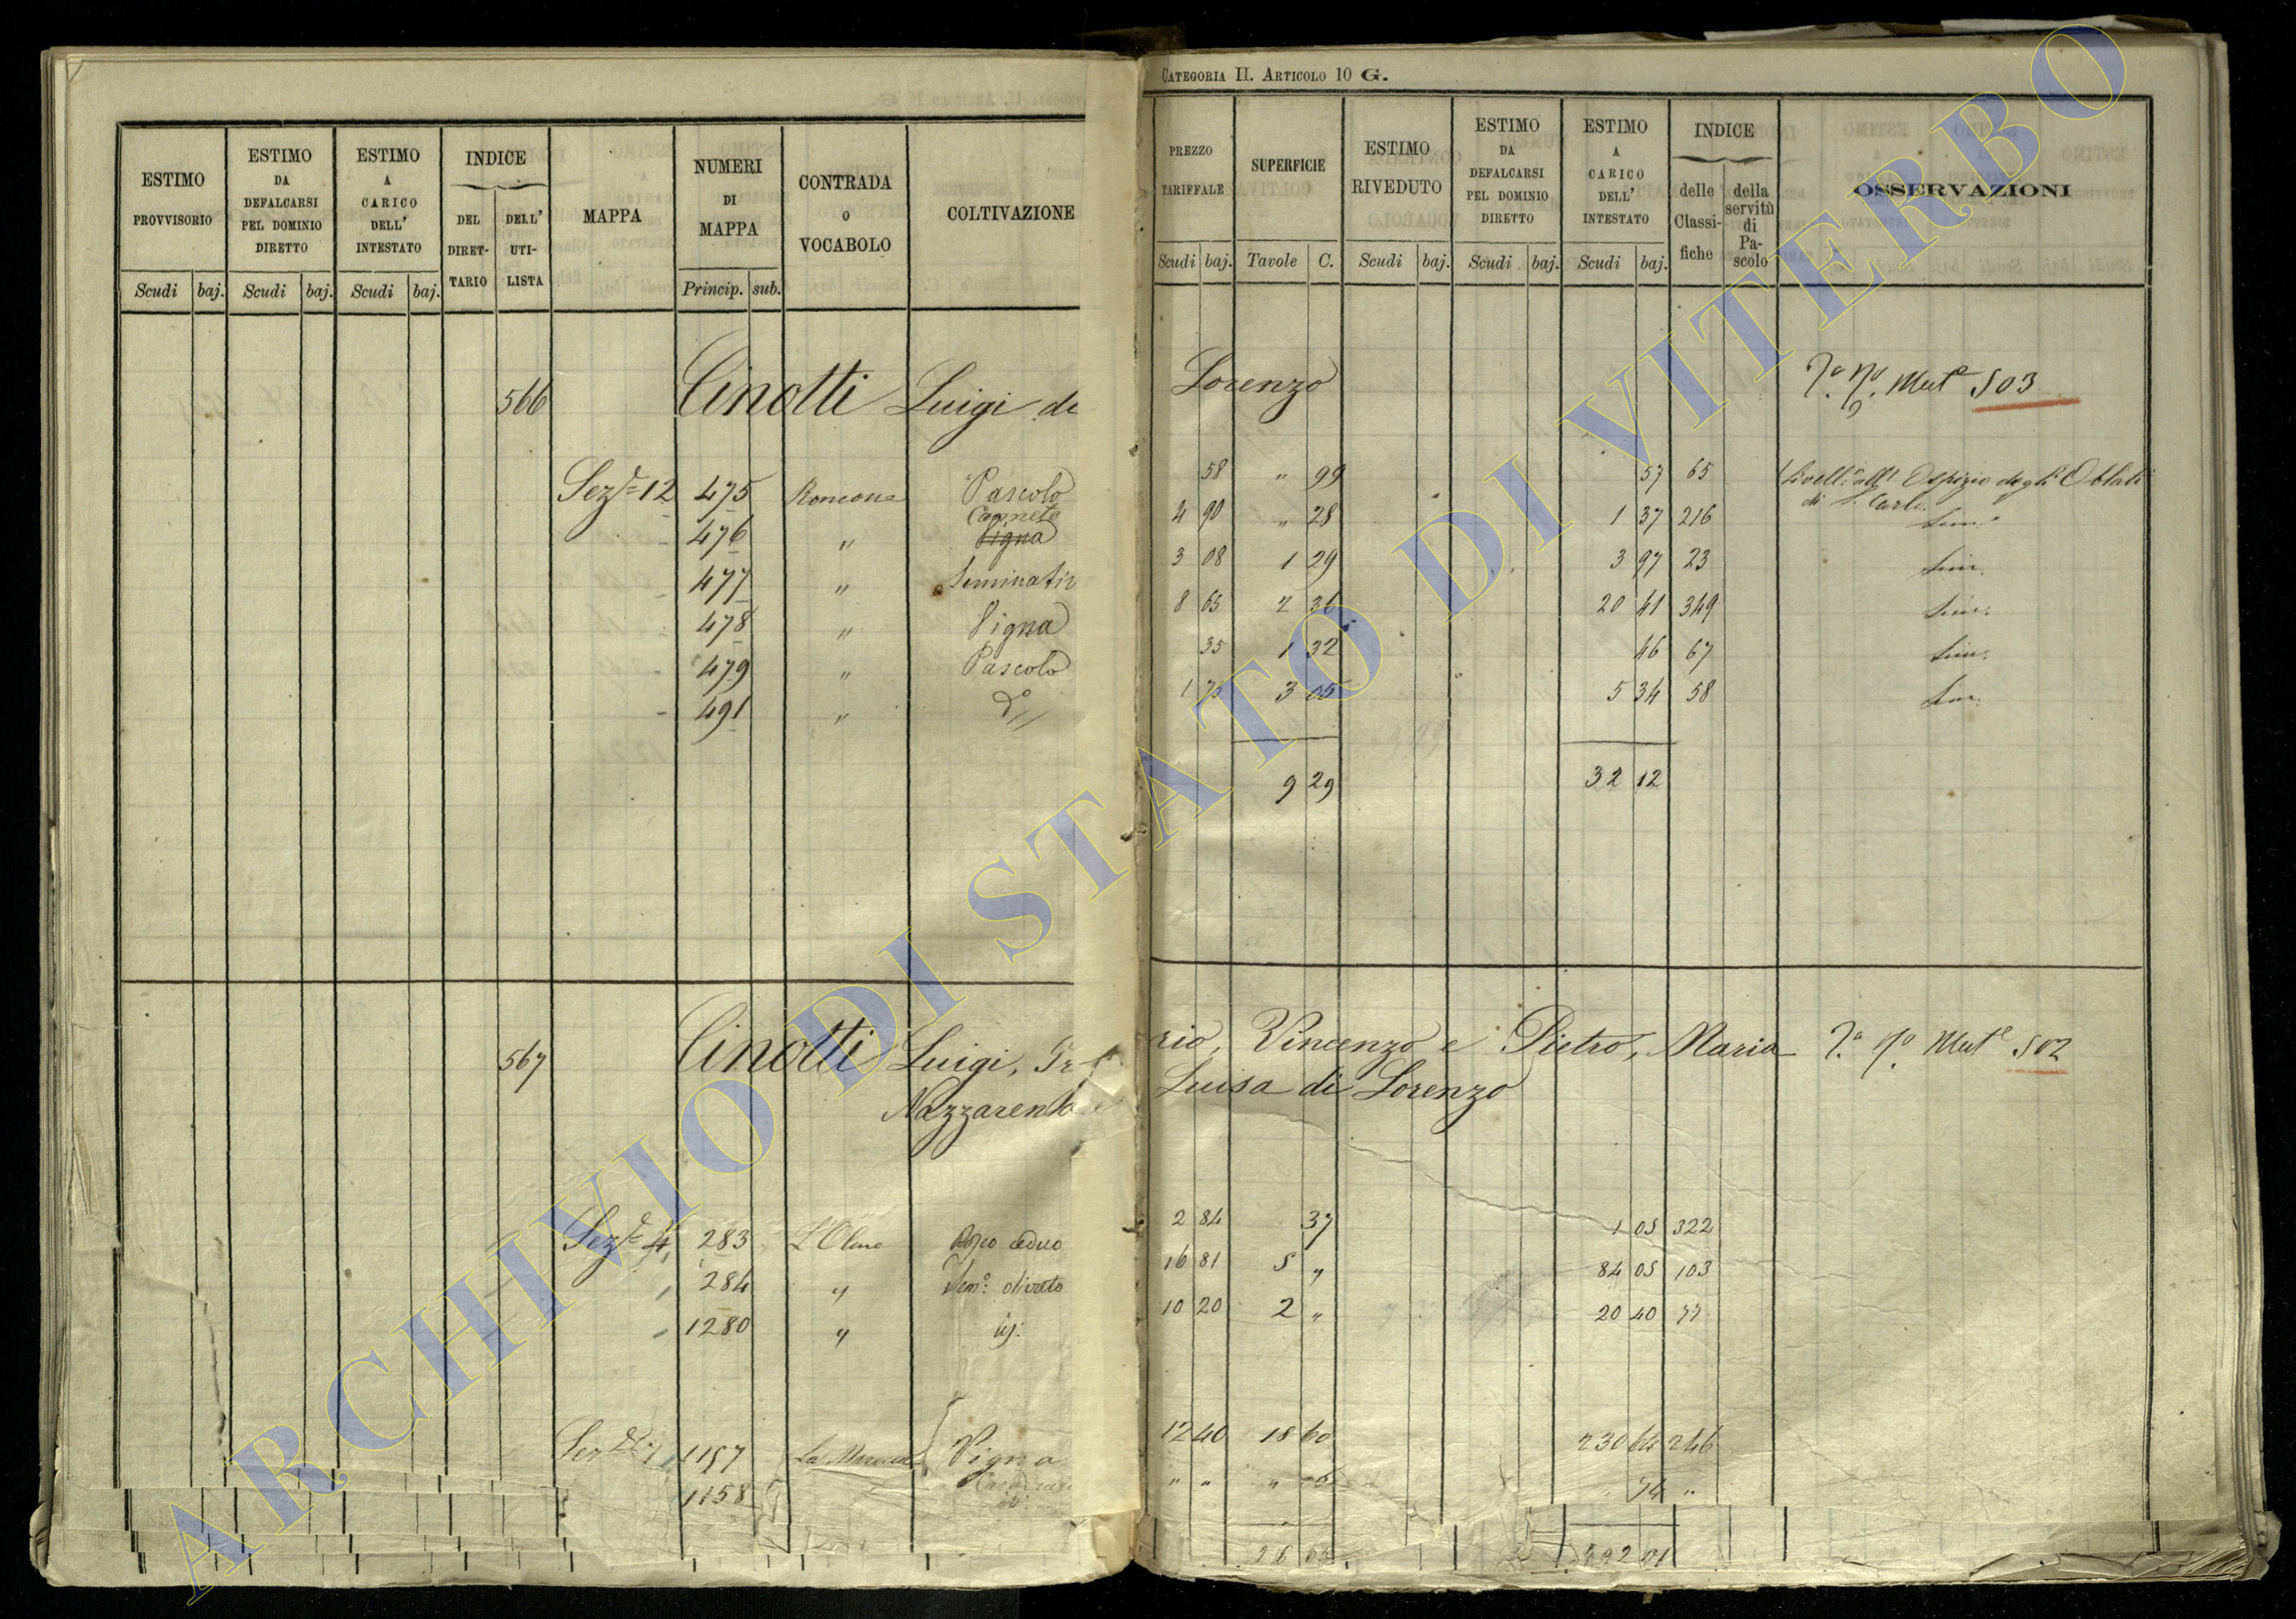 CATEGORIA II. ARTICOLO 10 G.
ESTIMO PROVVISORIO Scudi baj.
ESTIMO DA DEFALCARSI PEL DOMINIO DIRETTO Scudi baj.
ESTIMO A CARICO DELL' INTESTATO Scudi baj.
INDICE DEL DIRETTARIO DELL' UTILISTA
MAPPA
NUMERI DI MAPPA Princip. sub.
CONTRADA O VOCABOLO
COLTIVAZIONE
PREZZO TARIFFALE Scudi baj.
SUPERFICIE Tavole C.
ESTIMO RIVEDUTO Scudi baj.
ESTIMO DA DEFALCARSI PEL DOMINIO DIRETTO Scudi baj.
ESTIMO A CARICO DELL' INTESTATO Scudi baj.
INDICE delle Classifiche della servitù di Pascolo
OSSERVAZIONI
566 Cinotti Luigi di Lorenzo 503
Sez.e 12 475 Pascolo 58 " 99 57 65 Livell.o all' Ospizio degli Oblati
di S. Carlo
476 " Canneto Vigna 4 90 " 28 1 37 216 Sim.
477 " Seminativ 3 08 1 29 3 97 23 Sim.
478 " Vigna 8 65 2 36 20 41 349 Sim.
479 " Pascolo 35 1 32 46 67 Sim.
491 " d.o 1 75 3 05 5 34 58 Sim.
9 29 32 12
567 Cinotti Luigi, rio, Vincenzo e Pietro, Maria 502
Nazzarena e Luisa di Lorenzo
Sez.e 4 283 L'Olmo Bosco ceduo 2 84 37 1 05 322
" 284 " Sem.o olivato 16 81 5 " 84 05 103
" 1280 " 10 20 2 " 20 40 77
1157 Vigna 12 40 18 60 230 64 246
1158 " " " 74 "
ARCHIVIO DI STATO DI VITERBO